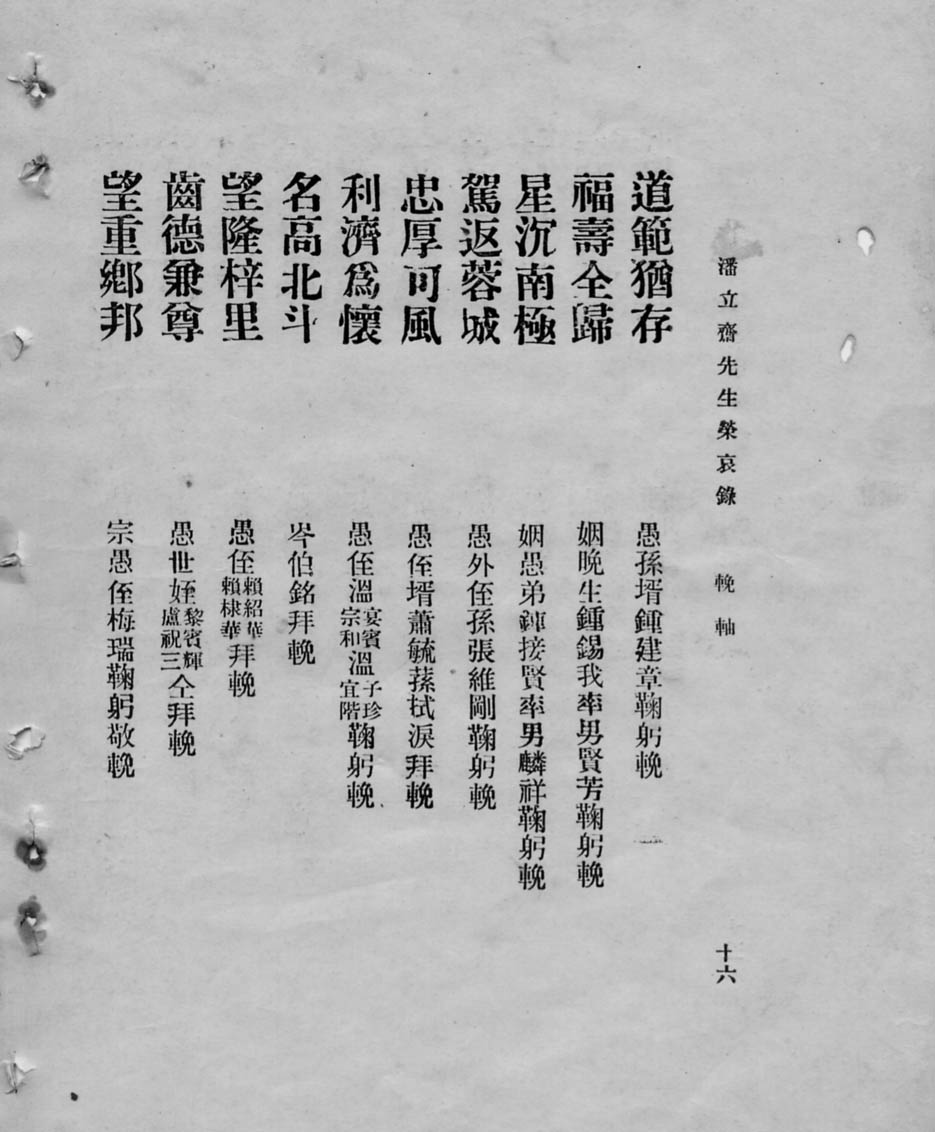 潘立齋先生榮哀錄 輓軸 十六
道範猶存 愚孫壻鍾建章鞠躬輓
福壽全歸 姻晚生鍾錫我率男賢芳鞠躬輓
星沉南極 姻愚弟鍾接賢率男麟祥鞠躬輓
駕返蓉城 愚外侄孫張維剛鞠躬輓
忠厚可風 愚侄壻蕭毓蓀拭淚拜輓
利濟爲懷 愚侄溫宴賓宗和溫子珍宜階鞠躬輓
名高北斗 岑伯銘拜輓
望隆梓里 愚侄賴紹華賴棣華拜輓
齒德兼尊 愚世姪黎賓輝盧祝三仝拜輓
望重鄉邦 宗愚侄梅瑞鞠躬敬輓